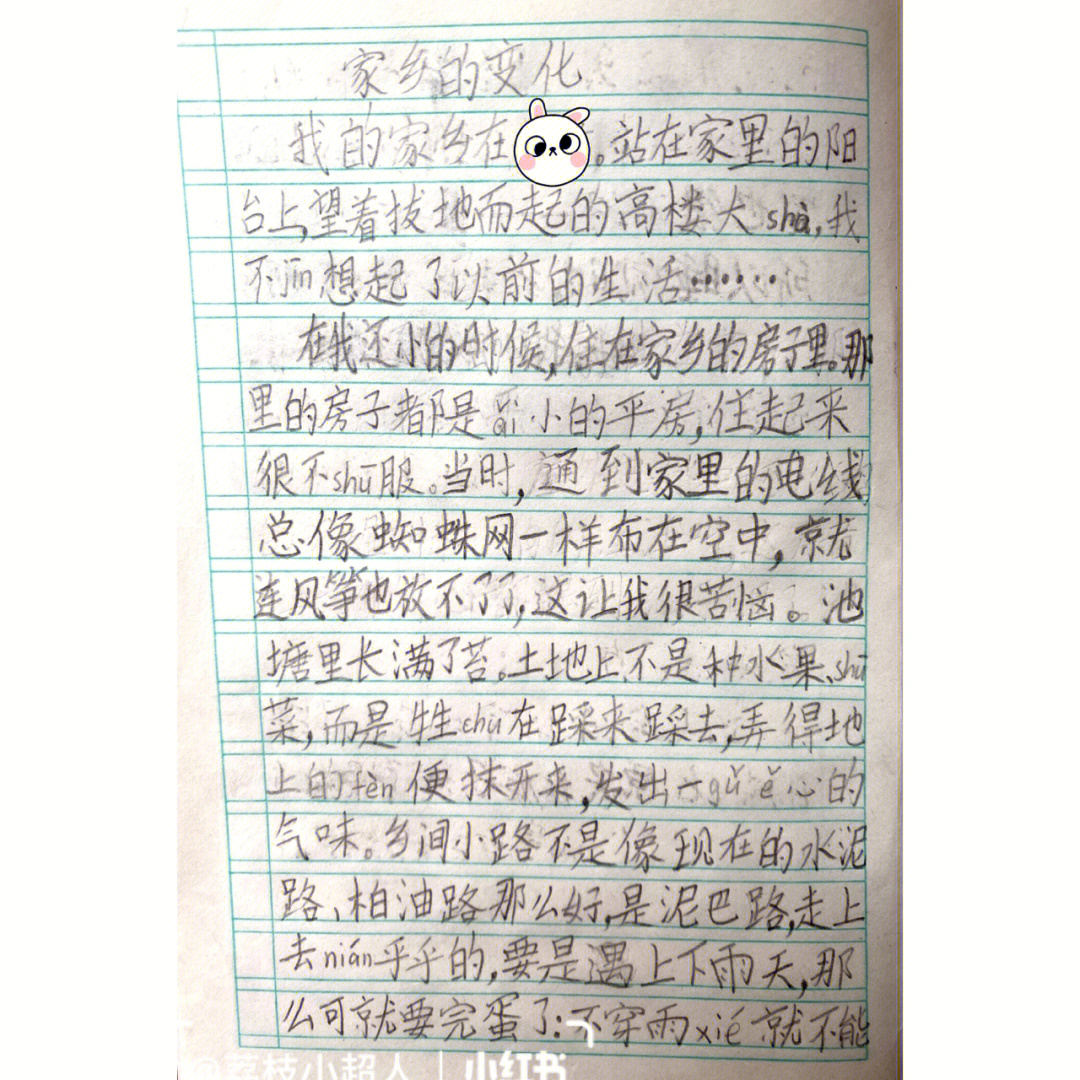 家乡的变化
我的家乡在。站在家里的阳
台上,望着拔地而起的高楼大shà,我
不jīn想起了以前的生活……
在我还小的时候,住在家乡的房子里。那
里的房子都是ǎi小的平房,住起来
很不shū服。当时,通到家里的电线
总像蜘蛛网一样布在空中,就
连风筝也放不了了,这让我很苦恼。池
塘里长满了苔。土地上不是种水果、shū
菜,而是牲chù在踩来踩去,弄得地
上的fèn便抹开来,发出一gǔ ě心的
气味。乡间小路不是像现在的水泥
路、柏油路那么好,是泥巴路,走上
去nián乎乎的,要是遇上下雨天,那
么可就要完蛋了:不穿雨xié就不能
@荔枝小超人 | 小红书